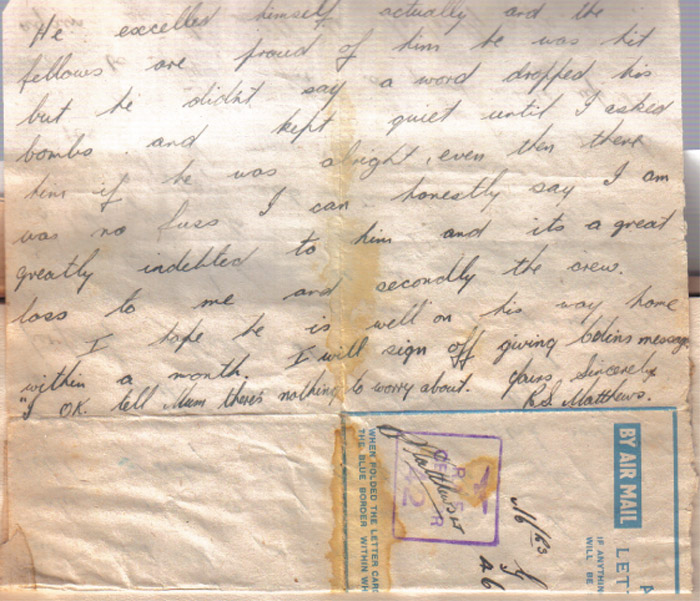 He excelled himself actually and the
fellows are proud of him he was hit
but he didn't say a word dropped his
bombs and kept quiet until I asked
him if he was alright, even then there
was no fuss I can honestly say I am
greatly indebted to him and its a great
loss to me and secondly the crew.
I hope he is well on his way home
within a month. I will sign off giving Colins message
"I OK. tell Mum there's nothing to worry about. Yours Sincerely
R.S. Matthews.
BY AIR MAIL
LETT
IF ANYTHIN
WILL BE
WHEN FOLDED THE LETTER CARD
THE BLUE BORDER WITHIN WH
Matthews